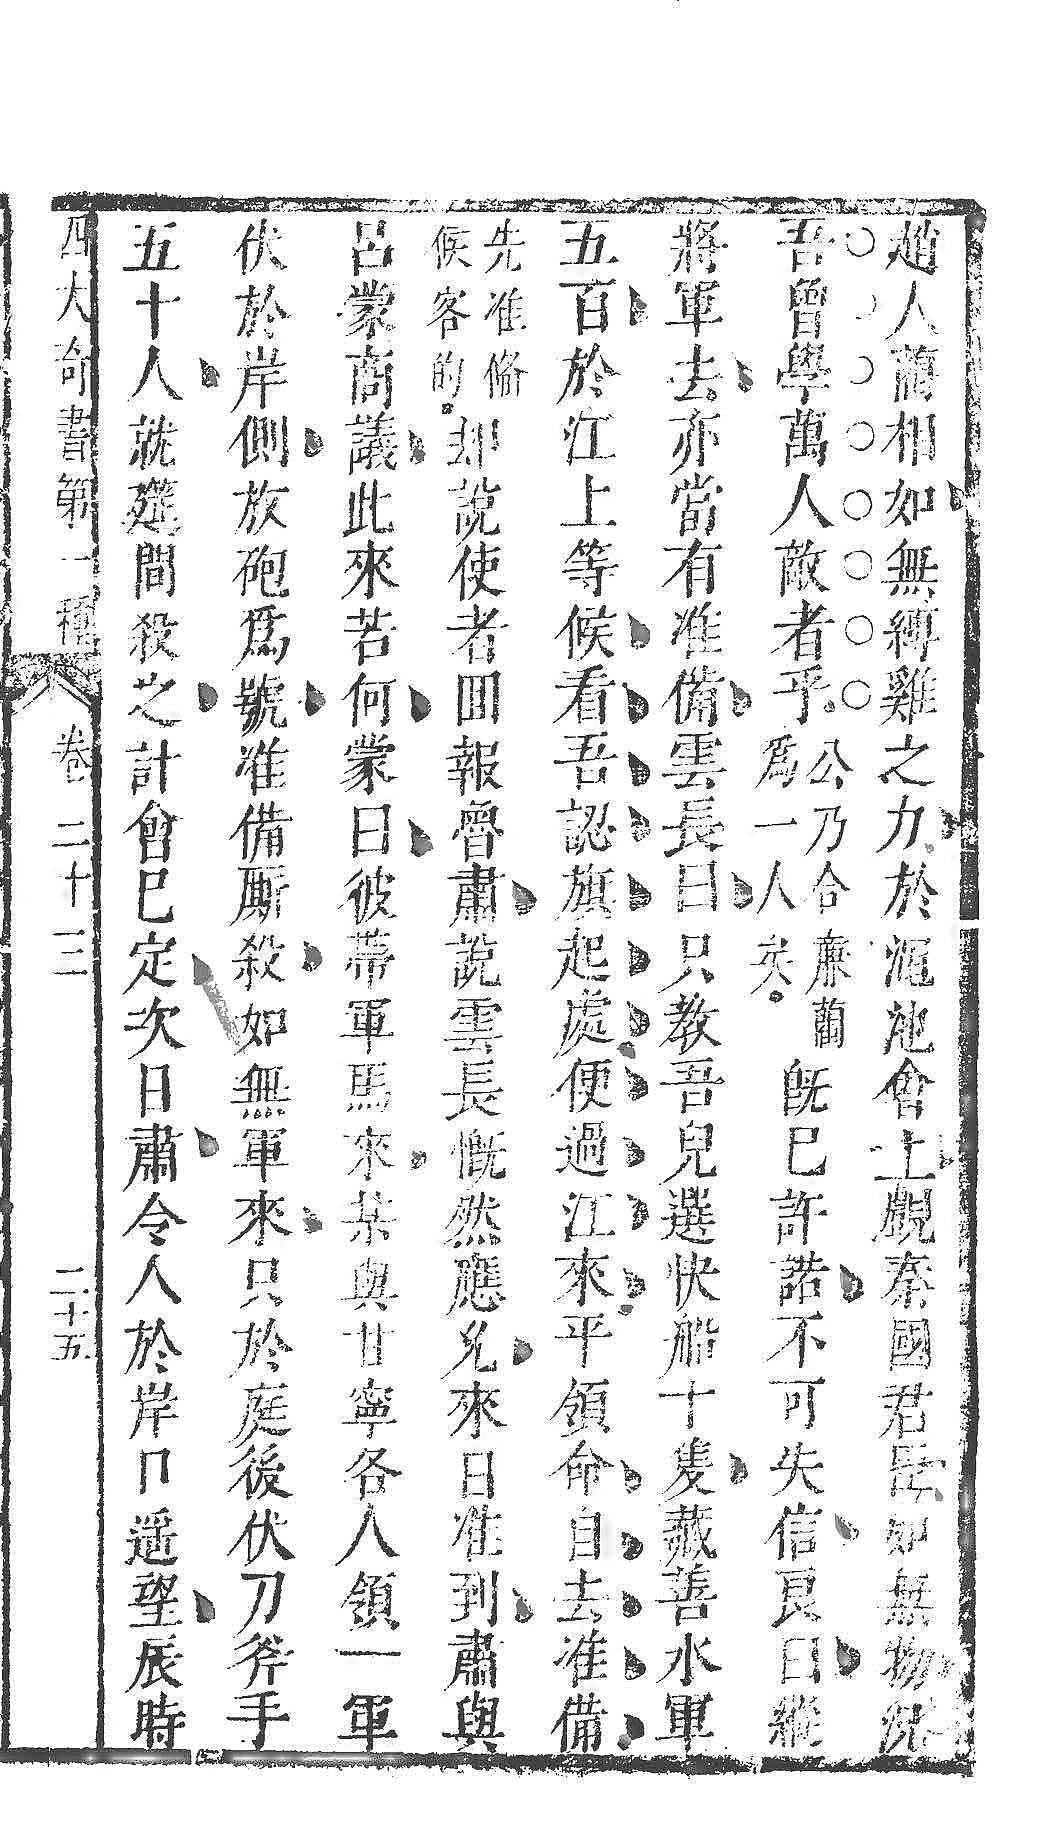 趙人藺相如無縛雞之力於澠池會上覷秦國君臣如無物況
吾曾學萬人敵者乎公乃合廉藺爲一人矣既已許諾不可失信良曰縱
將軍去亦當有准備雲長曰只教吾兒選快船十隻藏善水軍
五百於江上等候看吾認旗起處便過江來平領命自去准備
先准偹候客的却說使者回報魯肅說雲長慨然應允來日准到肅與
呂蒙商議此來若何蒙曰彼帶軍馬來某與甘寧各人領一軍
伏於岸側放砲爲號准備厮殺如無軍來只於庭後伏刀斧手
五十人就筵間殺之計會已定次日肅令人於岸口遥望辰時
四大奇書第一種 卷二十三 二十五